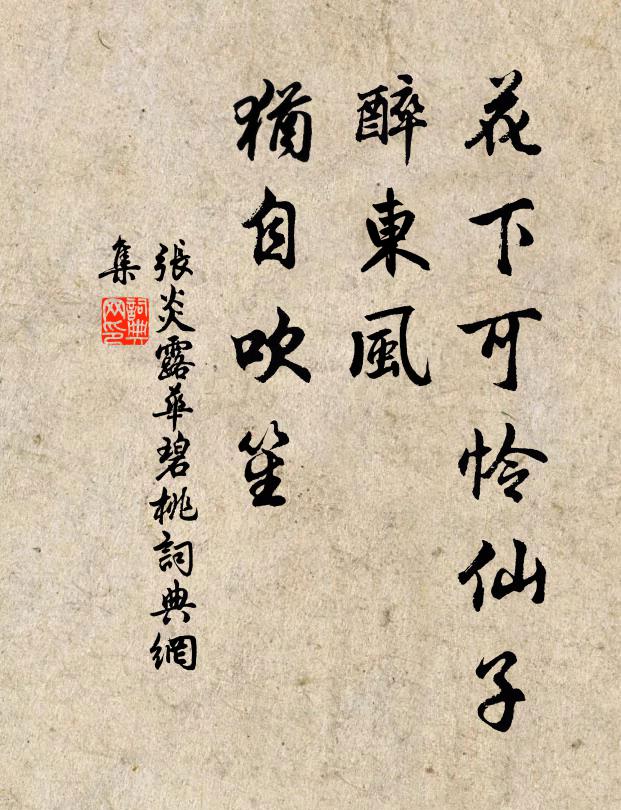 花下可怜仙子
醉東風
猶自吹笙
張炎露華碧桃詞典網
集
詞典
网印